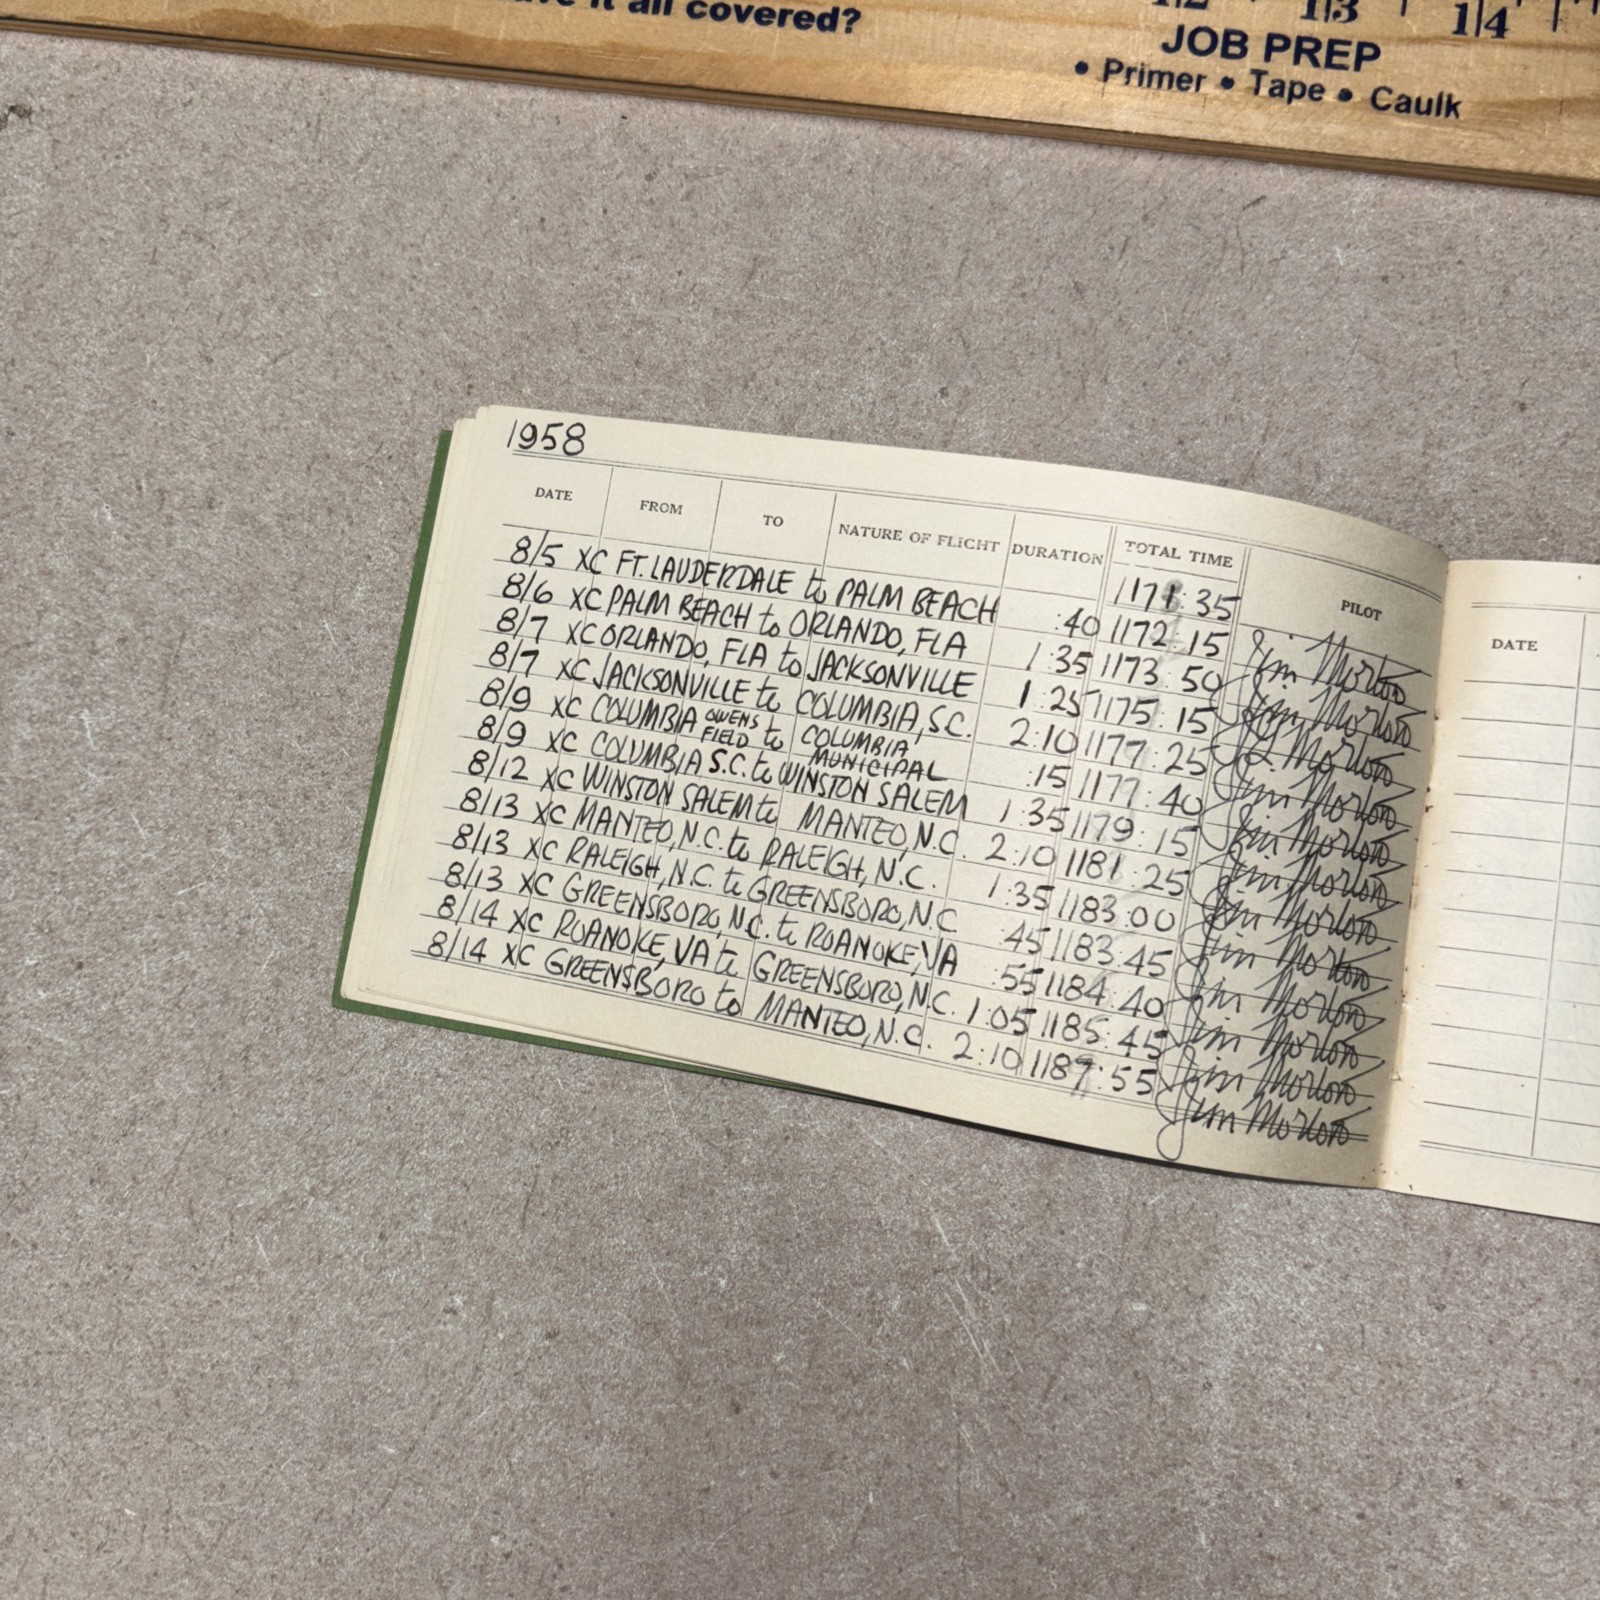 it all covered?
1|2 1|3 1|4
JOB PREP
• Primer • Tape • Caulk
1958
DATE FROM TO NATURE OF FLIGHT DURATION TOTAL TIME PILOT
1171:35
8/5 XC FT. LAUDERDALE to PALM BEACH :40 1172:15 Jim Morton
8/6 XC PALM BEACH to ORLANDO, FLA 1:35 1173:50 Jim Morton
8/7 XC ORLANDO, FLA to JACKSONVILLE 1:25 1175:15 J. Morton
8/7 XC JACKSONVILLE to COLUMBIA, S.C. 2:10 1177:25 Jim Morton
8/9 XC COLUMBIA OWENS FIELD to COLUMBIA MUNICIPAL :15 1177:40 Jim Morton
8/9 XC COLUMBIA S.C. to WINSTON SALEM 1:35 1179:15 Jim Morton
8/12 XC WINSTON SALEM to MANTEO, N.C. 2:10 1181:25 Jim Morton
8/13 XC MANTEO, N.C. to RALEIGH, N.C. 1:35 1183:00 Jim Morton
8/13 XC RALEIGH, N.C. to GREENSBORO, N.C :45 1183:45 Jim Morton
8/13 XC GREENSBORO, N.C. to ROANOKE, VA :55 1184:40 Jim Morton
8/14 XC ROANOKE, VA to GREENSBORO, N.C. 1:05 1185:45 Jim Morton
8/14 XC GREENSBORO to MANTEO, N.C. 2:10 1187:55 Jim Morton
DATE